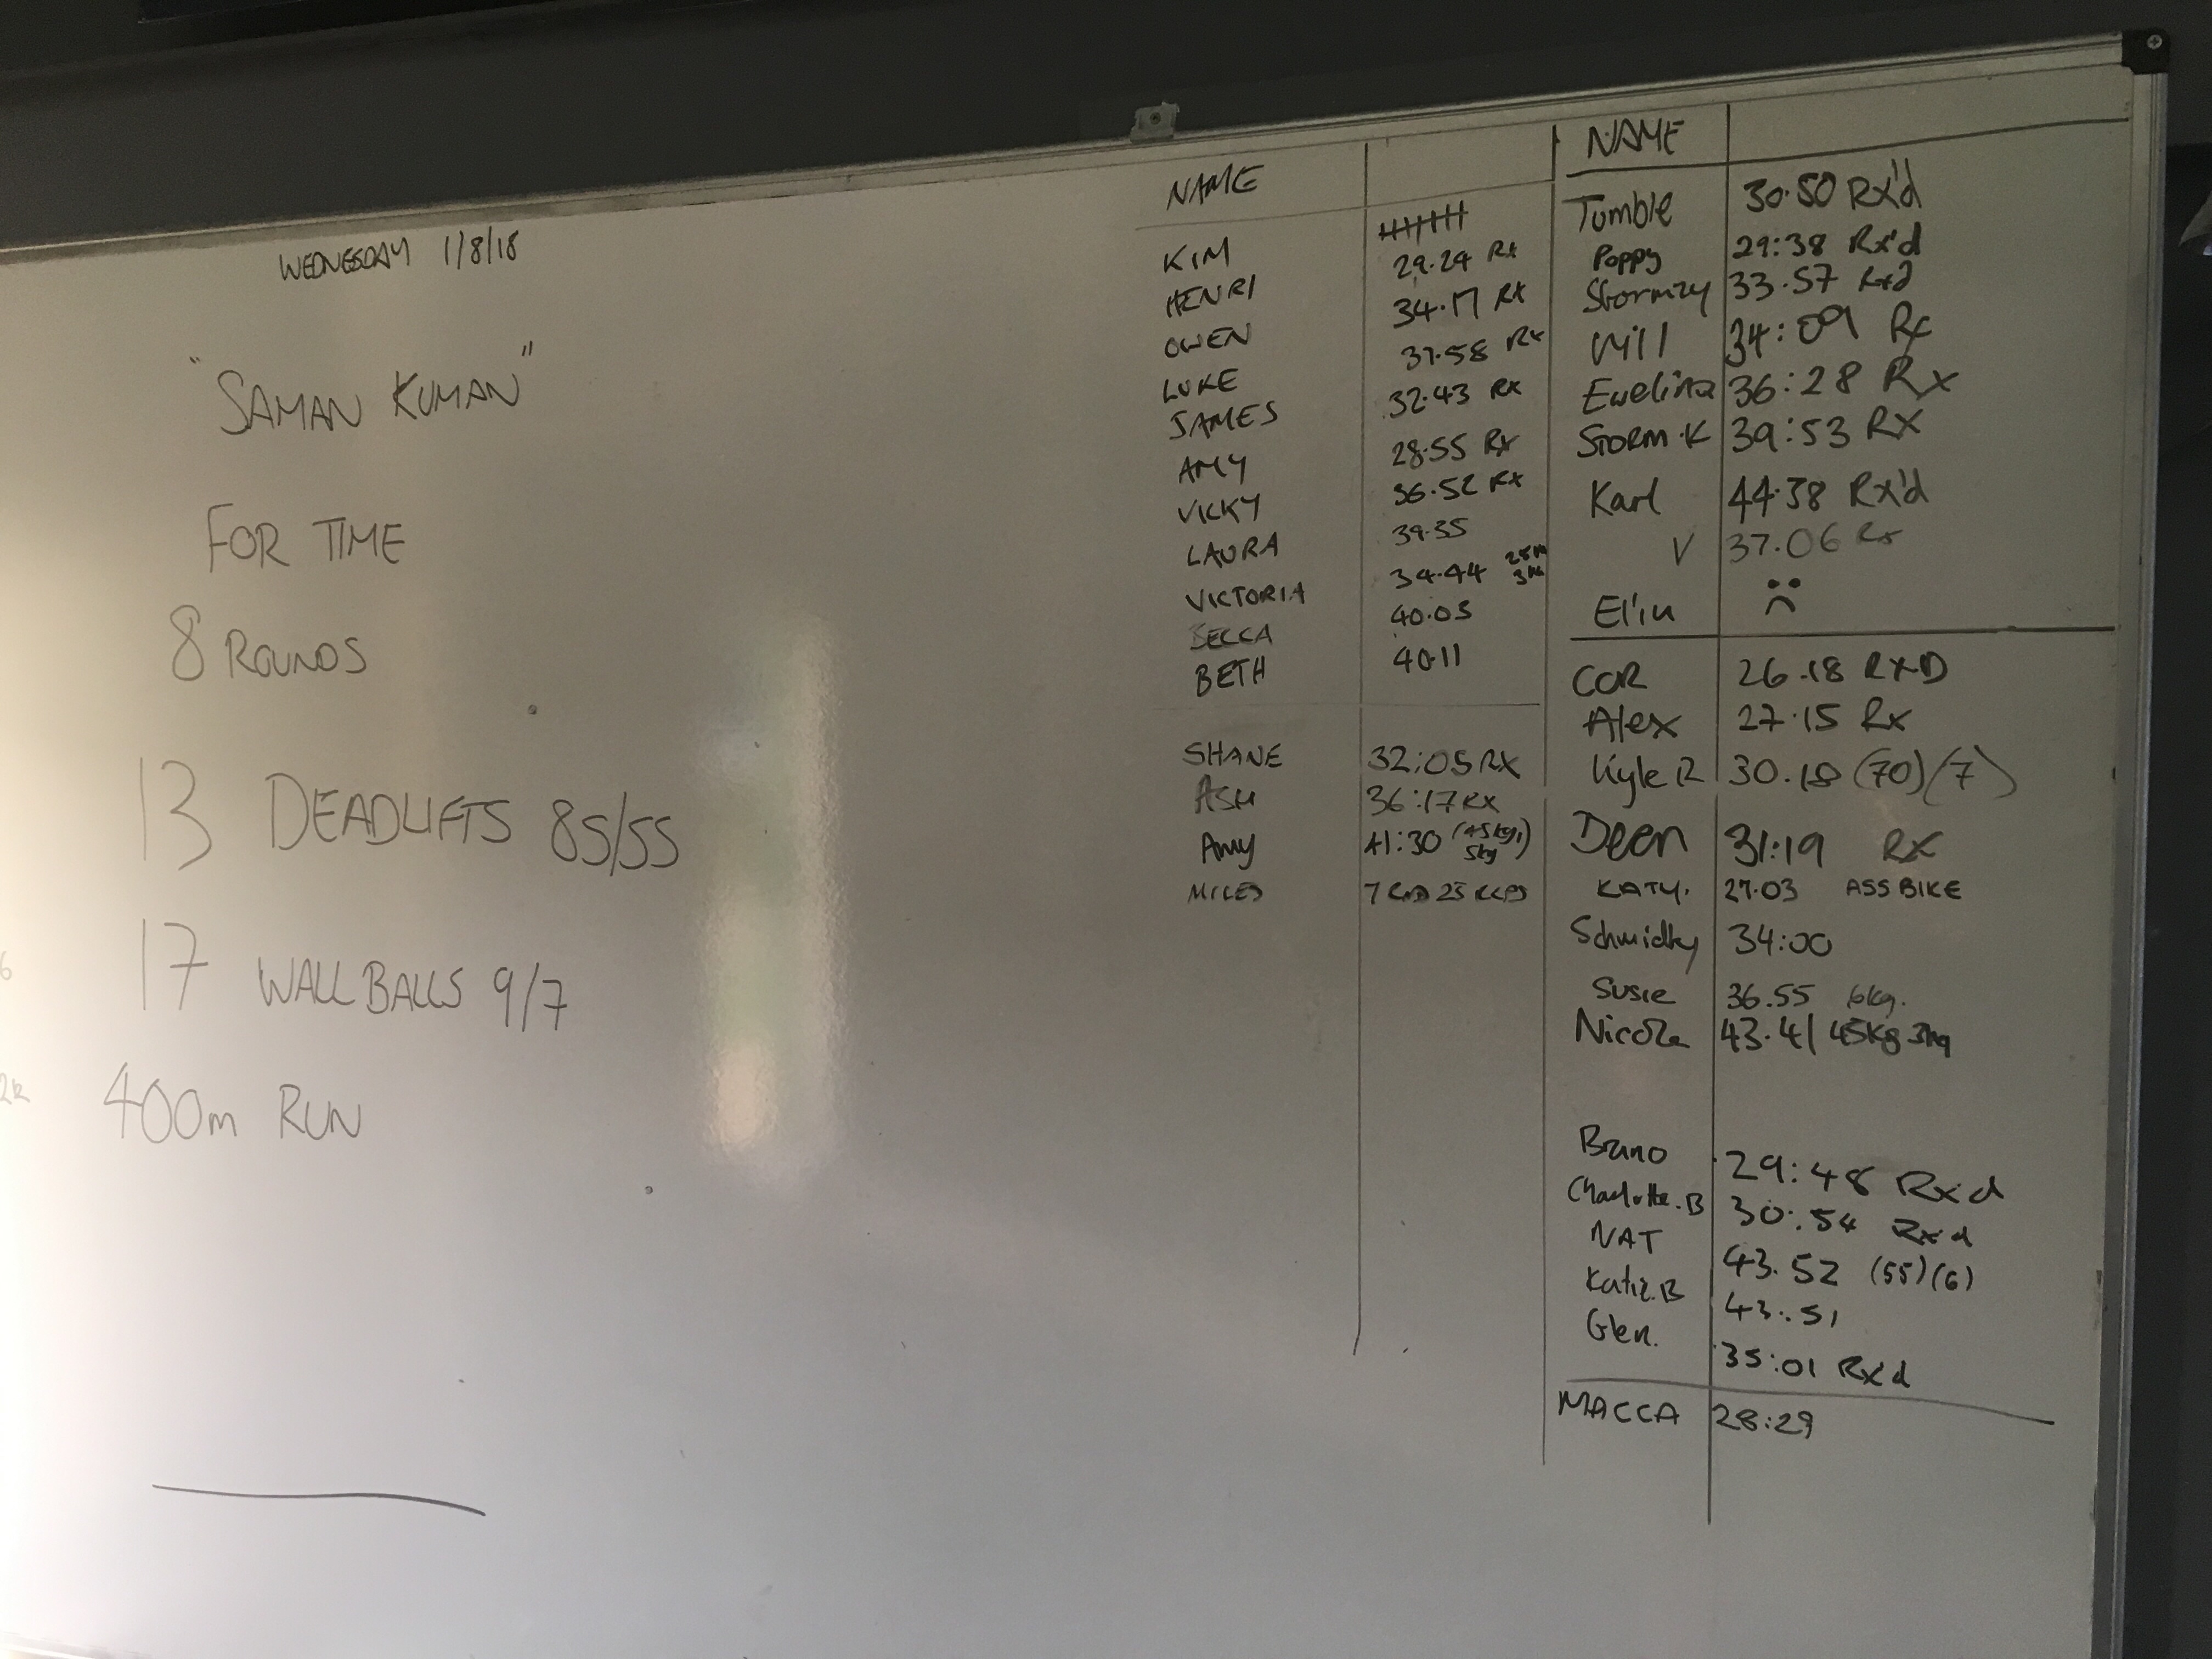 WEDNESDAY 1/8/18
"SAMAN KUMAN"
FOR TIME
8 ROUNDS
13 DEADLIFTS 85/55
17 WALL BALLS 9/7
400m RUN
NAME
KIM 29.24 Rx
HENRI 34.17 Rx
OWEN 37.58 Rx
LUKE 32.43 Rx
JAMES 28.55 Rx
AMY 36.52 Rx
VICKY 39.35
LAURA 34.44
VICTORIA 40.03
BECCA 40.11
BETH
SHANE 32:05 RX
ASH 36:17 RX
Amy 41:30 (45kg,) 5kg
MILES 7 RND 25 REPS
NAME
Tumble 30.50 Rx'd
Poppy 29:38 Rx'd
Stormzy 33.57 Rxd
Will 34:09 Rx
Ewelina 36:28 Rx
STORM.K 39:53 RX
Karl 44.38 Rx'd
V 37.06 Rx
Eliu
COR 26.18 RXD
Alex 27.15 Rx
Kyle R 30.18 (70)(7)
Deen 31:19 RX
KATY. 27.03 ASS BIKE
Schmidty 34:00
Susie 36.55 6kg.
Nicola 43.41 45Kg 3kg
Bruno 29:48 Rxd
Charlotte.B 30:54 Rxd
NAT 43.52 (55)(6)
Katie.B 43:51
Glen. 35:01 Rx'd
MACCA 28:29